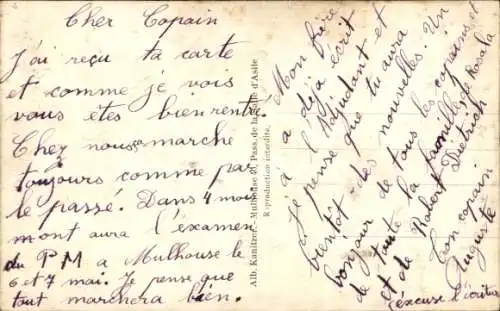 Cher Copain
J'ai reçu ta carte
et comme je vois
vous êtes bien rentré
Chez nous ça marche
toujours comme par
le passé. Dans 4 mois
mont aura l'éxamen
du P M a Mulhouse le
6 et 7 mai. Je pense que
tout marchera bien.
Alb. Kanitzer - Mulhouse 20, Pass. de la Salle d'Asile
Reproduction interdite.
Mon frère
a déjà écrit
a l'Adjudant et
Je pense que tu aura
bientôt des nouvelles. Un
bonjour de tous les copains et
de toute la famille de Rosala
et de Robert Dietrich
Ton copain
Auguste
(éxcuse l'écriture